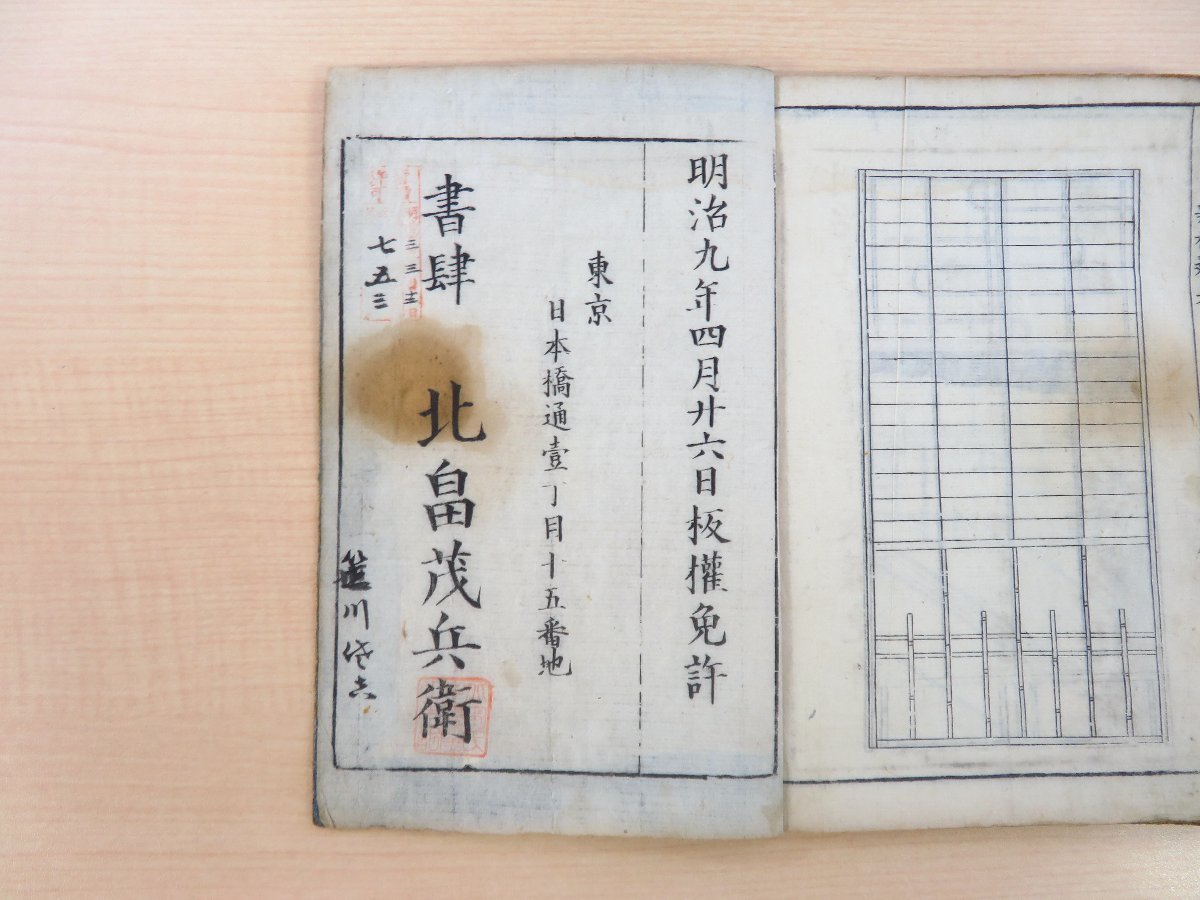 明治九年四月廿六日板權免許
東京
日本橋通壹丁目十五番地
書肆 北畠茂兵衛
三三十二
七五三